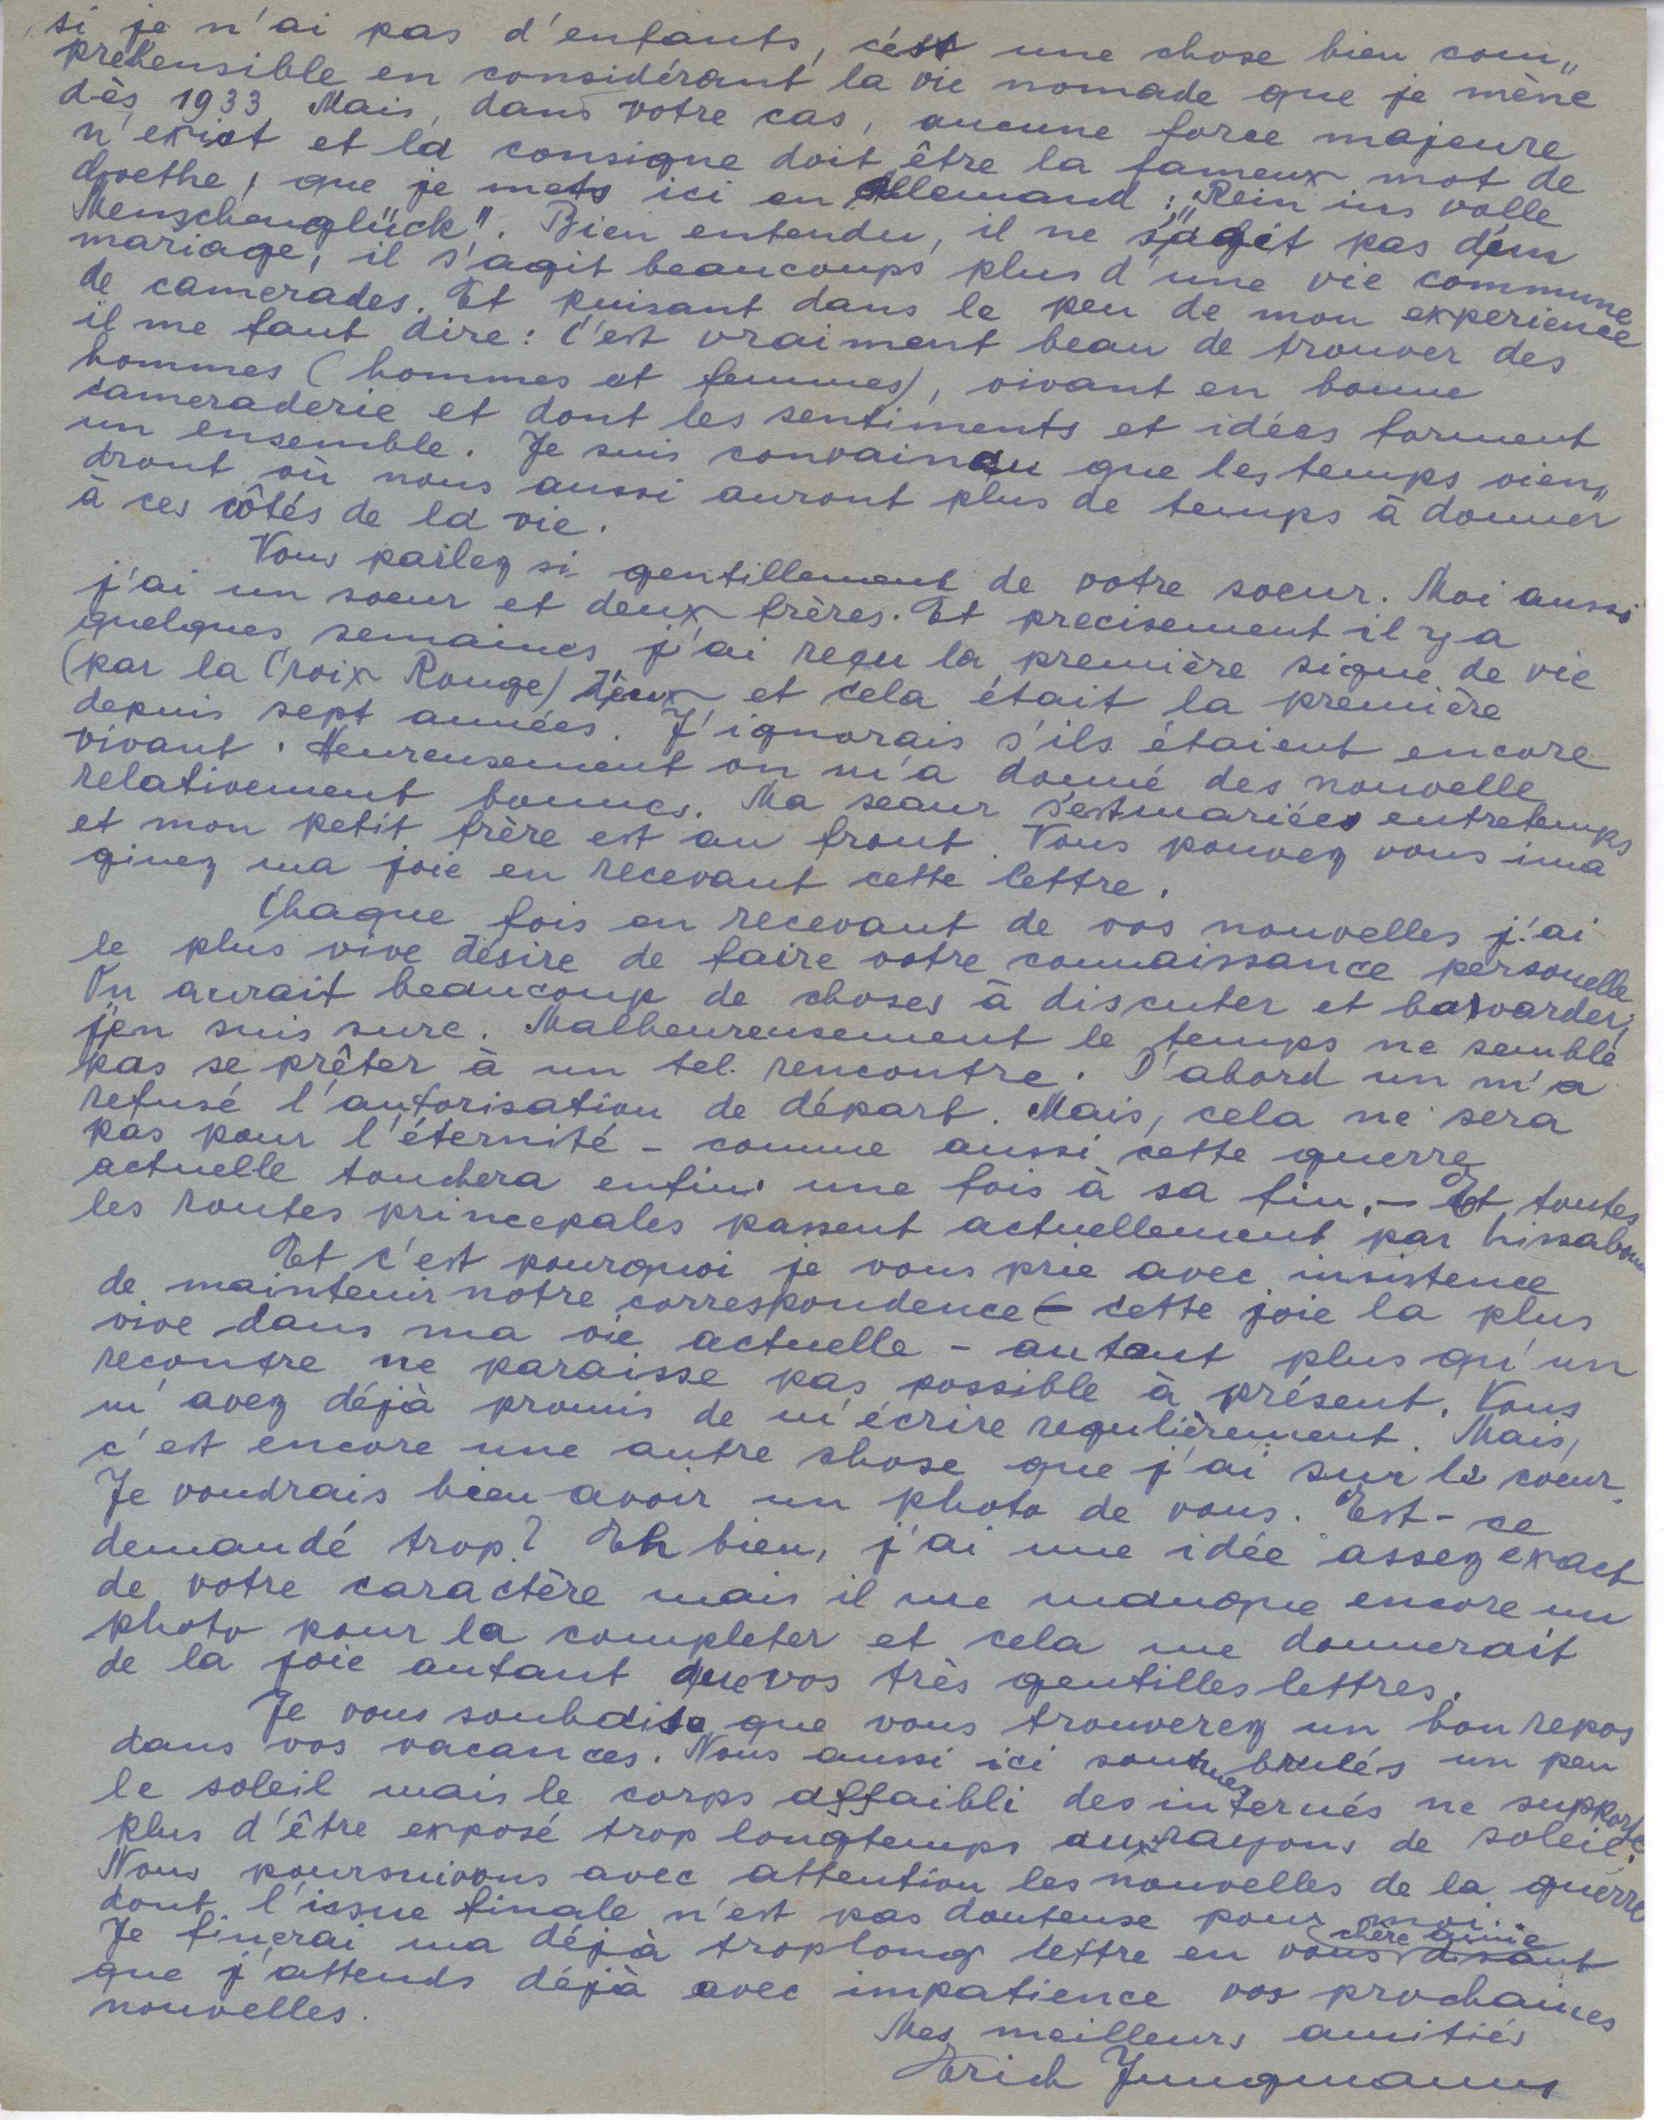 si je n'ai pas d'enfants, c'est une chose bien com„
prehensible en considérant la vie nomade que je mène
dès 1933 Mais, dans votre cas, aucune force majeure
n'exist et la consigne doit être la fameux mot de
Goethe, que je mets ici en Allemand: „Rein ins volle
Menschenglück". Bien entendu, il ne s'agit pas d'un
mariage, il s'agit beaucoups plus d'une vie commune
de camerades. Et puisant dans le peu de mon experience
il me faut dire: C'est vraiment beau de trouver des
hommes (hommes et femmes), vivant en bonne
cameraderie et dont les sentiments et idées forment
un ensemble. Je suis convaincu que les temps vien„
dront où nous aussi auront plus de temps à donner
à ces côtés de la vie.
Vous parlez si gentillement de votre soeur. Moi aussi
j'ai un soeur et deux frères. Et precisement il y a
quelques semaines j'ai reçu la première signe de vie
(par la Croix Rouge) d'eux et cela était la première
depuis sept années. J'ignorais s'ils étaient encore
vivant. Heureusement on m'a donné des nouvelle
relativement bonnes. Ma seaur s'est mariées entretemps
et mon petit frère est au front. Vous pouvez vous ima
ginez ma joie en recevant cette lettre.
Chaque fois en recevant de vos nouvelles j'ai
le plus vive désire de faire votre connaissance personelle
On aurait beaucoup de choses à discuter et bavarder,
j'en suis sure. Malheureusement le temps ne semble
pas se prêter à un tel. rencontre. D'abord un m'a
refusé l'autorisation de départ. Mais, cela ne sera
pas pour l'éternité - comme aussi cette guerre
actuelle touchera enfin une fois à sa fin. - Et toutes
les routes princepales passent actuellement par Lissabonne
Et c'est pourquoi je vous prie avec insistence
de maintenir notre correspondence - cette joie la plus
vive dans ma vie actuelle - autant plus qu'un
recontre ne paraisse pas possible à présent. Vous
m'avez déjà promis de m'écrire regulièrement. Mais,
c'est encore une autre chose que j'ai sur le coeur.
Je voudrais bien avoir un photo de vous. Est-ce
demandé trop? Eh bien, j'ai une idée assez exact
de votre caractère mais il me manque encore un
photo pour la completer et cela me donnerait
de la joie autant que vos très gentilles lettres.
Je vous souhaite que vous trouverez un bon repos
dans vos vacances. Nous aussi ici sommes brulés un peu
le soleil mais le corps affaibli des internés ne supporte
plus d'être exposé trop longtemps aux rayons de soleil.
Nous poursuivons avec attention les nouvelles de la guerre
dont l'issue finale n'est pas douteuse pour moi.
Je finerai ma déjà trop long lettre en vous chère amie disant
que j'attends déjà avec impatience vos prochaines
nouvelles.
Mes meilleurs amitiés
Erich Jungmann